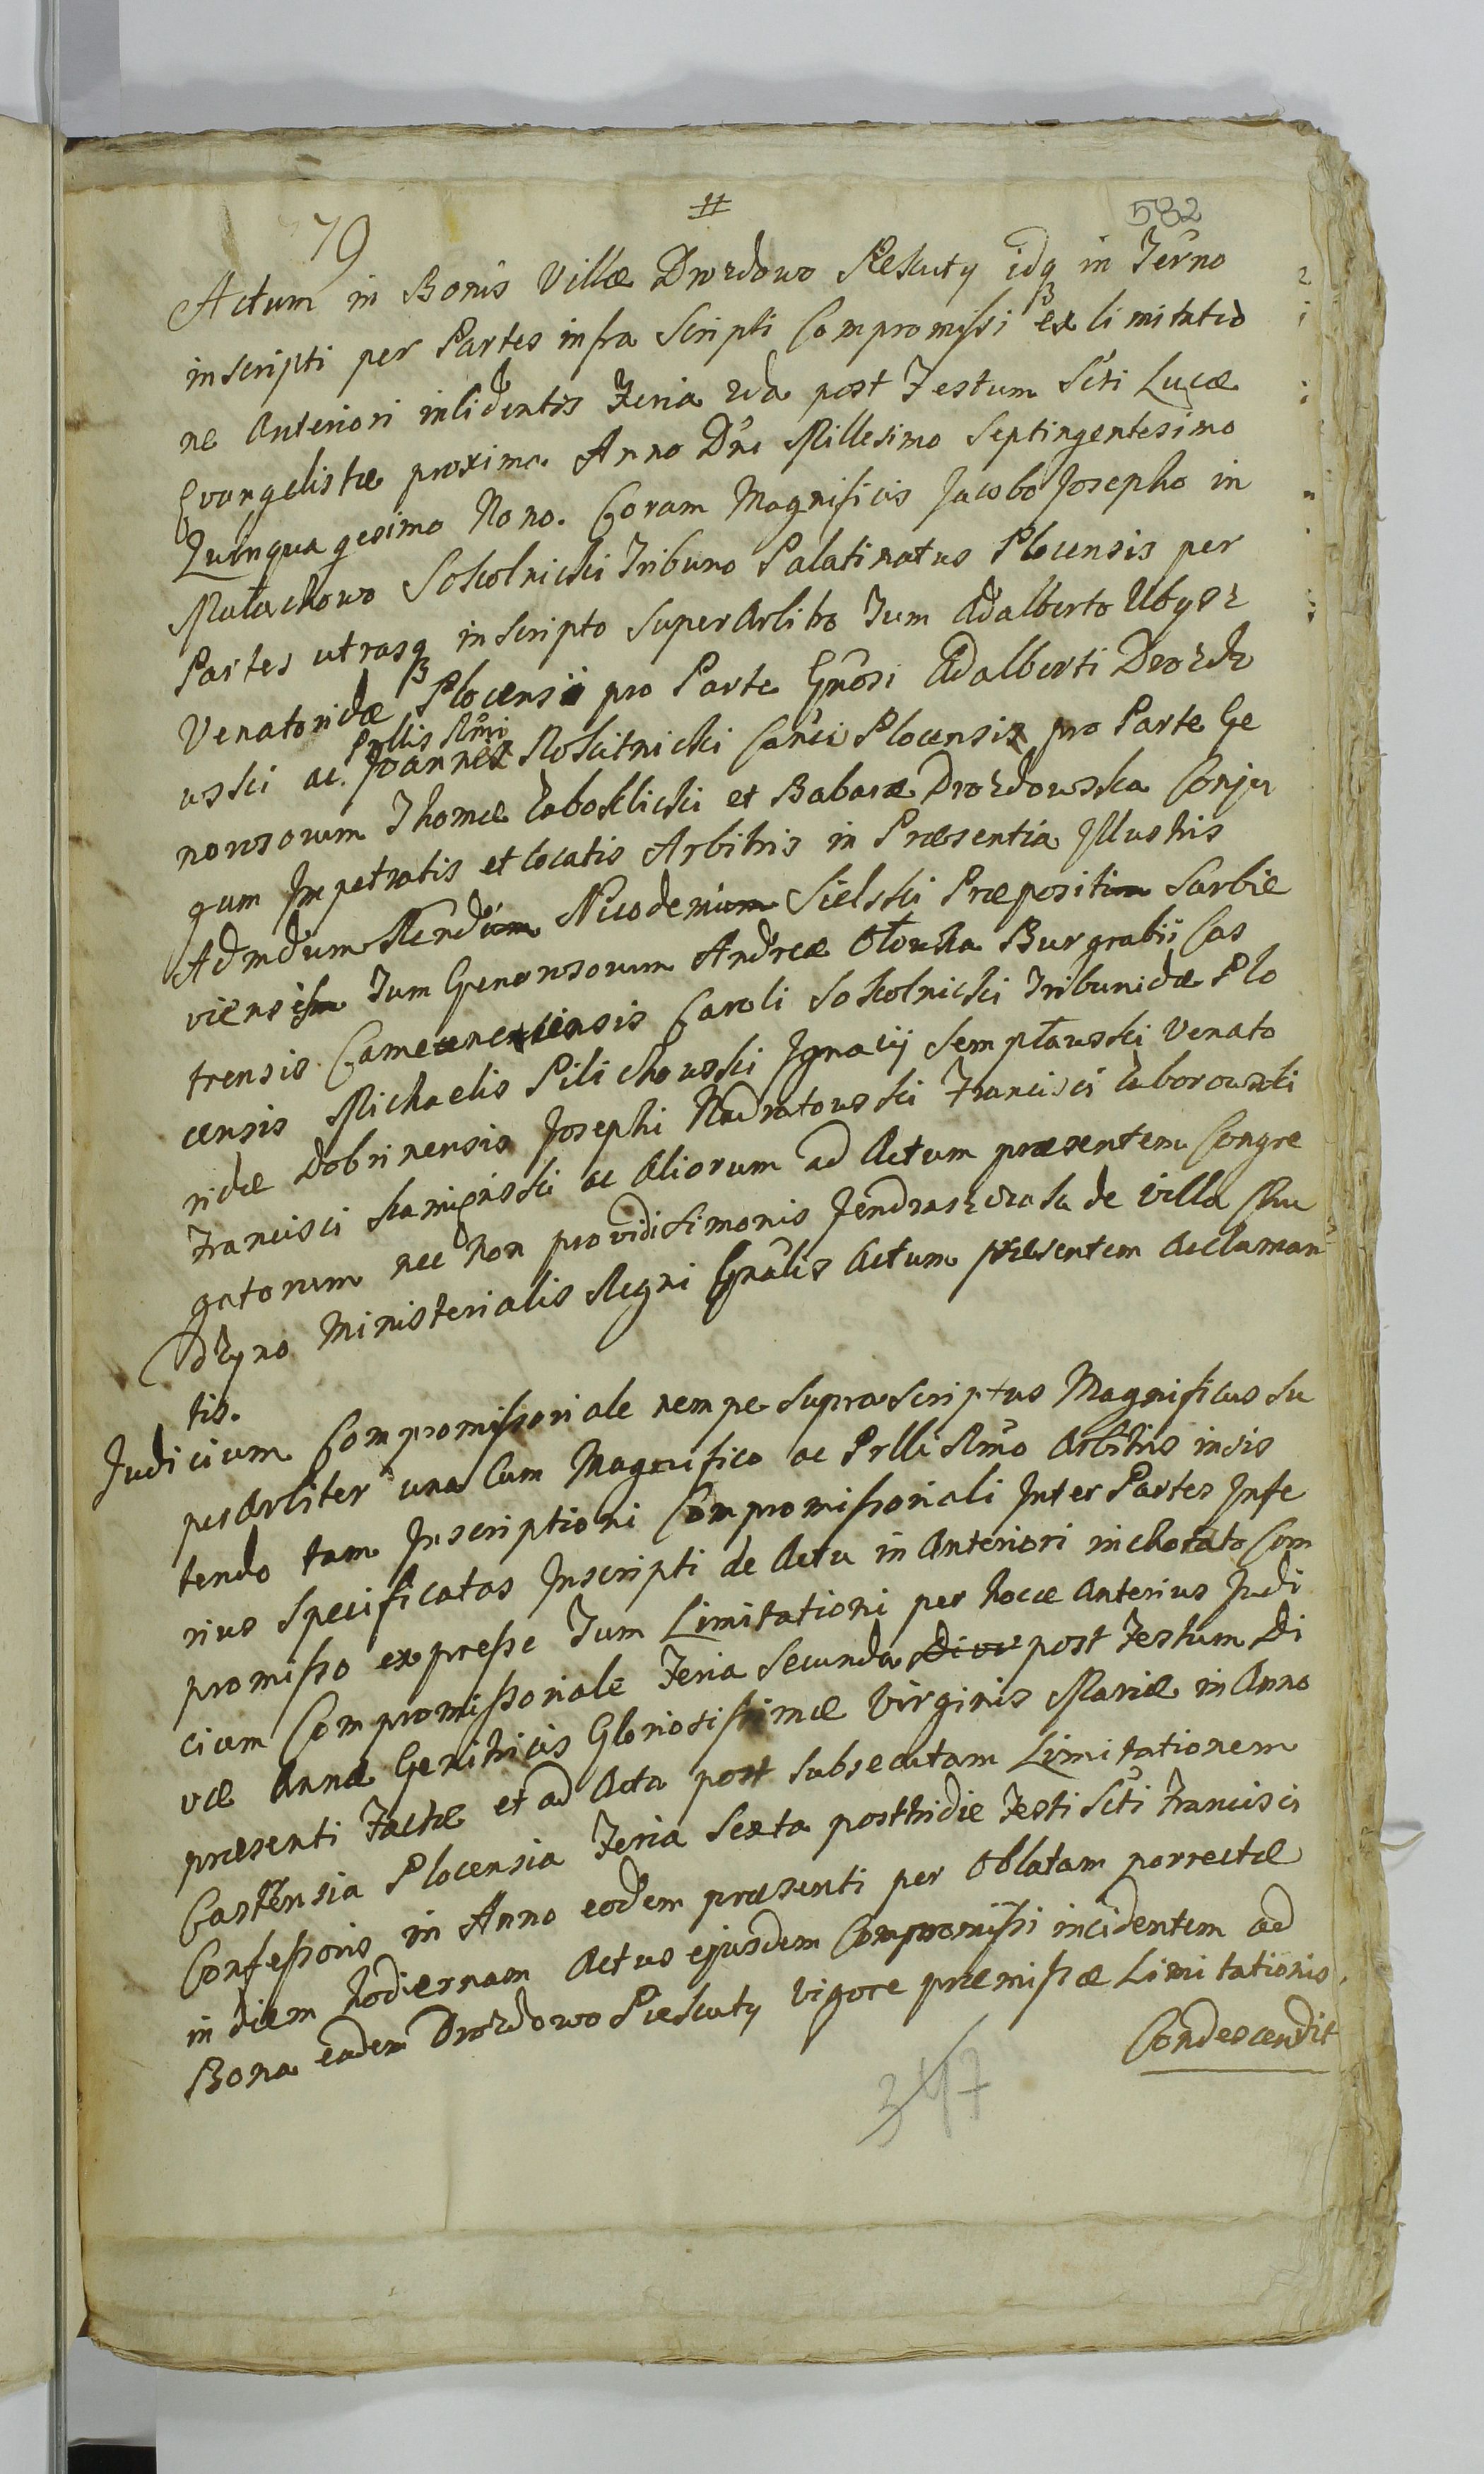 79 # 582
Actum in Bonis Villæ Drozdowo Rzeskuty idq3 in Terno
inscripti per Partes infra scripti Compromissi ex limitatio
ne anteriori incidentis Feria 2da post Festum Scti Lucæ
Evangelistæ proxima Anno Dni Millesimo Septingentesimo
Quinquagesimo Nono. Coram Magnificis Jacobo Josepho in
Małachowo Sokolnicki Tribuno Palatinatus Plocensis per
Partes utrasq3 inscripto SuperArbitro Tum Adalberto Ubysz
Venatoridæ Plocensi pro Parte Gnosi Adalberti Drozdo
wski ac Prllis Rmi Joannes Rokitnicki Canci Plocensis pro Parte Ge
nerosorum Thomæ Zaboklicki et Babaræ Drozdowska Conju
gum Impetratis et locatis Arbitris in Præsentia Illustris
Admdum Rendum Nicodemum Sielski Præpositum Sarbie
viensism Tum Generosorum Andreæ Ołowka Burgrabii Cas
trensis Camenecensis Caroli Sokolnicki Tribunidæ Plo
censis Michaelis Pilichowski Ignacij Sempławski Venato
ridæ Dobrinensis Josephi Nadratowski Francisci Zaborowski
Francisci ac Aliorum ad Actum præsentem Congre
gatorum nec non providi Simonis de Villa Chu
dzyno Ministerialis Regni Gnalis Actum præsentem acclaman
tis.
Judicium Compromissoriale nempe supra scriptus Magnificus Su
perArbiter una Cum Magnifico ac Prlli Rmo Arbitris insis
tendo tam Inscriptioni Compromissoriali Inter Partes Infe
rius Specificatas Inscripti de Actu in Anteriori inchoato Com
promisso expresse Tum Limitationi per hocce anterius Judi
cium Compromissoriale Feria Secunda Divæ post Festum Di
væ Annæ Genitricis Gloriosissimæ Virginis Mariæ in Anno
præsenti Factæ et ad Acta post subsecutam Limitationem
Castrensia Plocensia Feria Sexta posttridie Festi Scti Francisci
Confessoris in Anno eodem præsenti per Oblatam porrectæ
in diem hodiernam Actus ejusdem Compromissi incidentem ad
Bona eadem Drozdowo Rzeskuty vigore præmissæ Limitationis
Condescendit
347